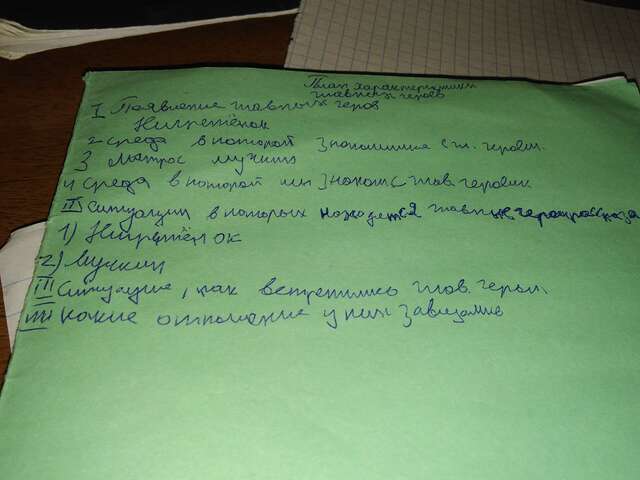 План характеристики
главных героев
I Появление главных геров
Нигретёнок
2 среда в которой знакомимся с гл. героем.
3 Матрос лучкин
4 среда в которой мы знаком с глав. героем
II Ситуации в которых находятся главные герои рассказа
1) Нигретёнок
2) Лучкин
III Ситуация, как встретились глав. герои.
IIII какие отношение у них завязались